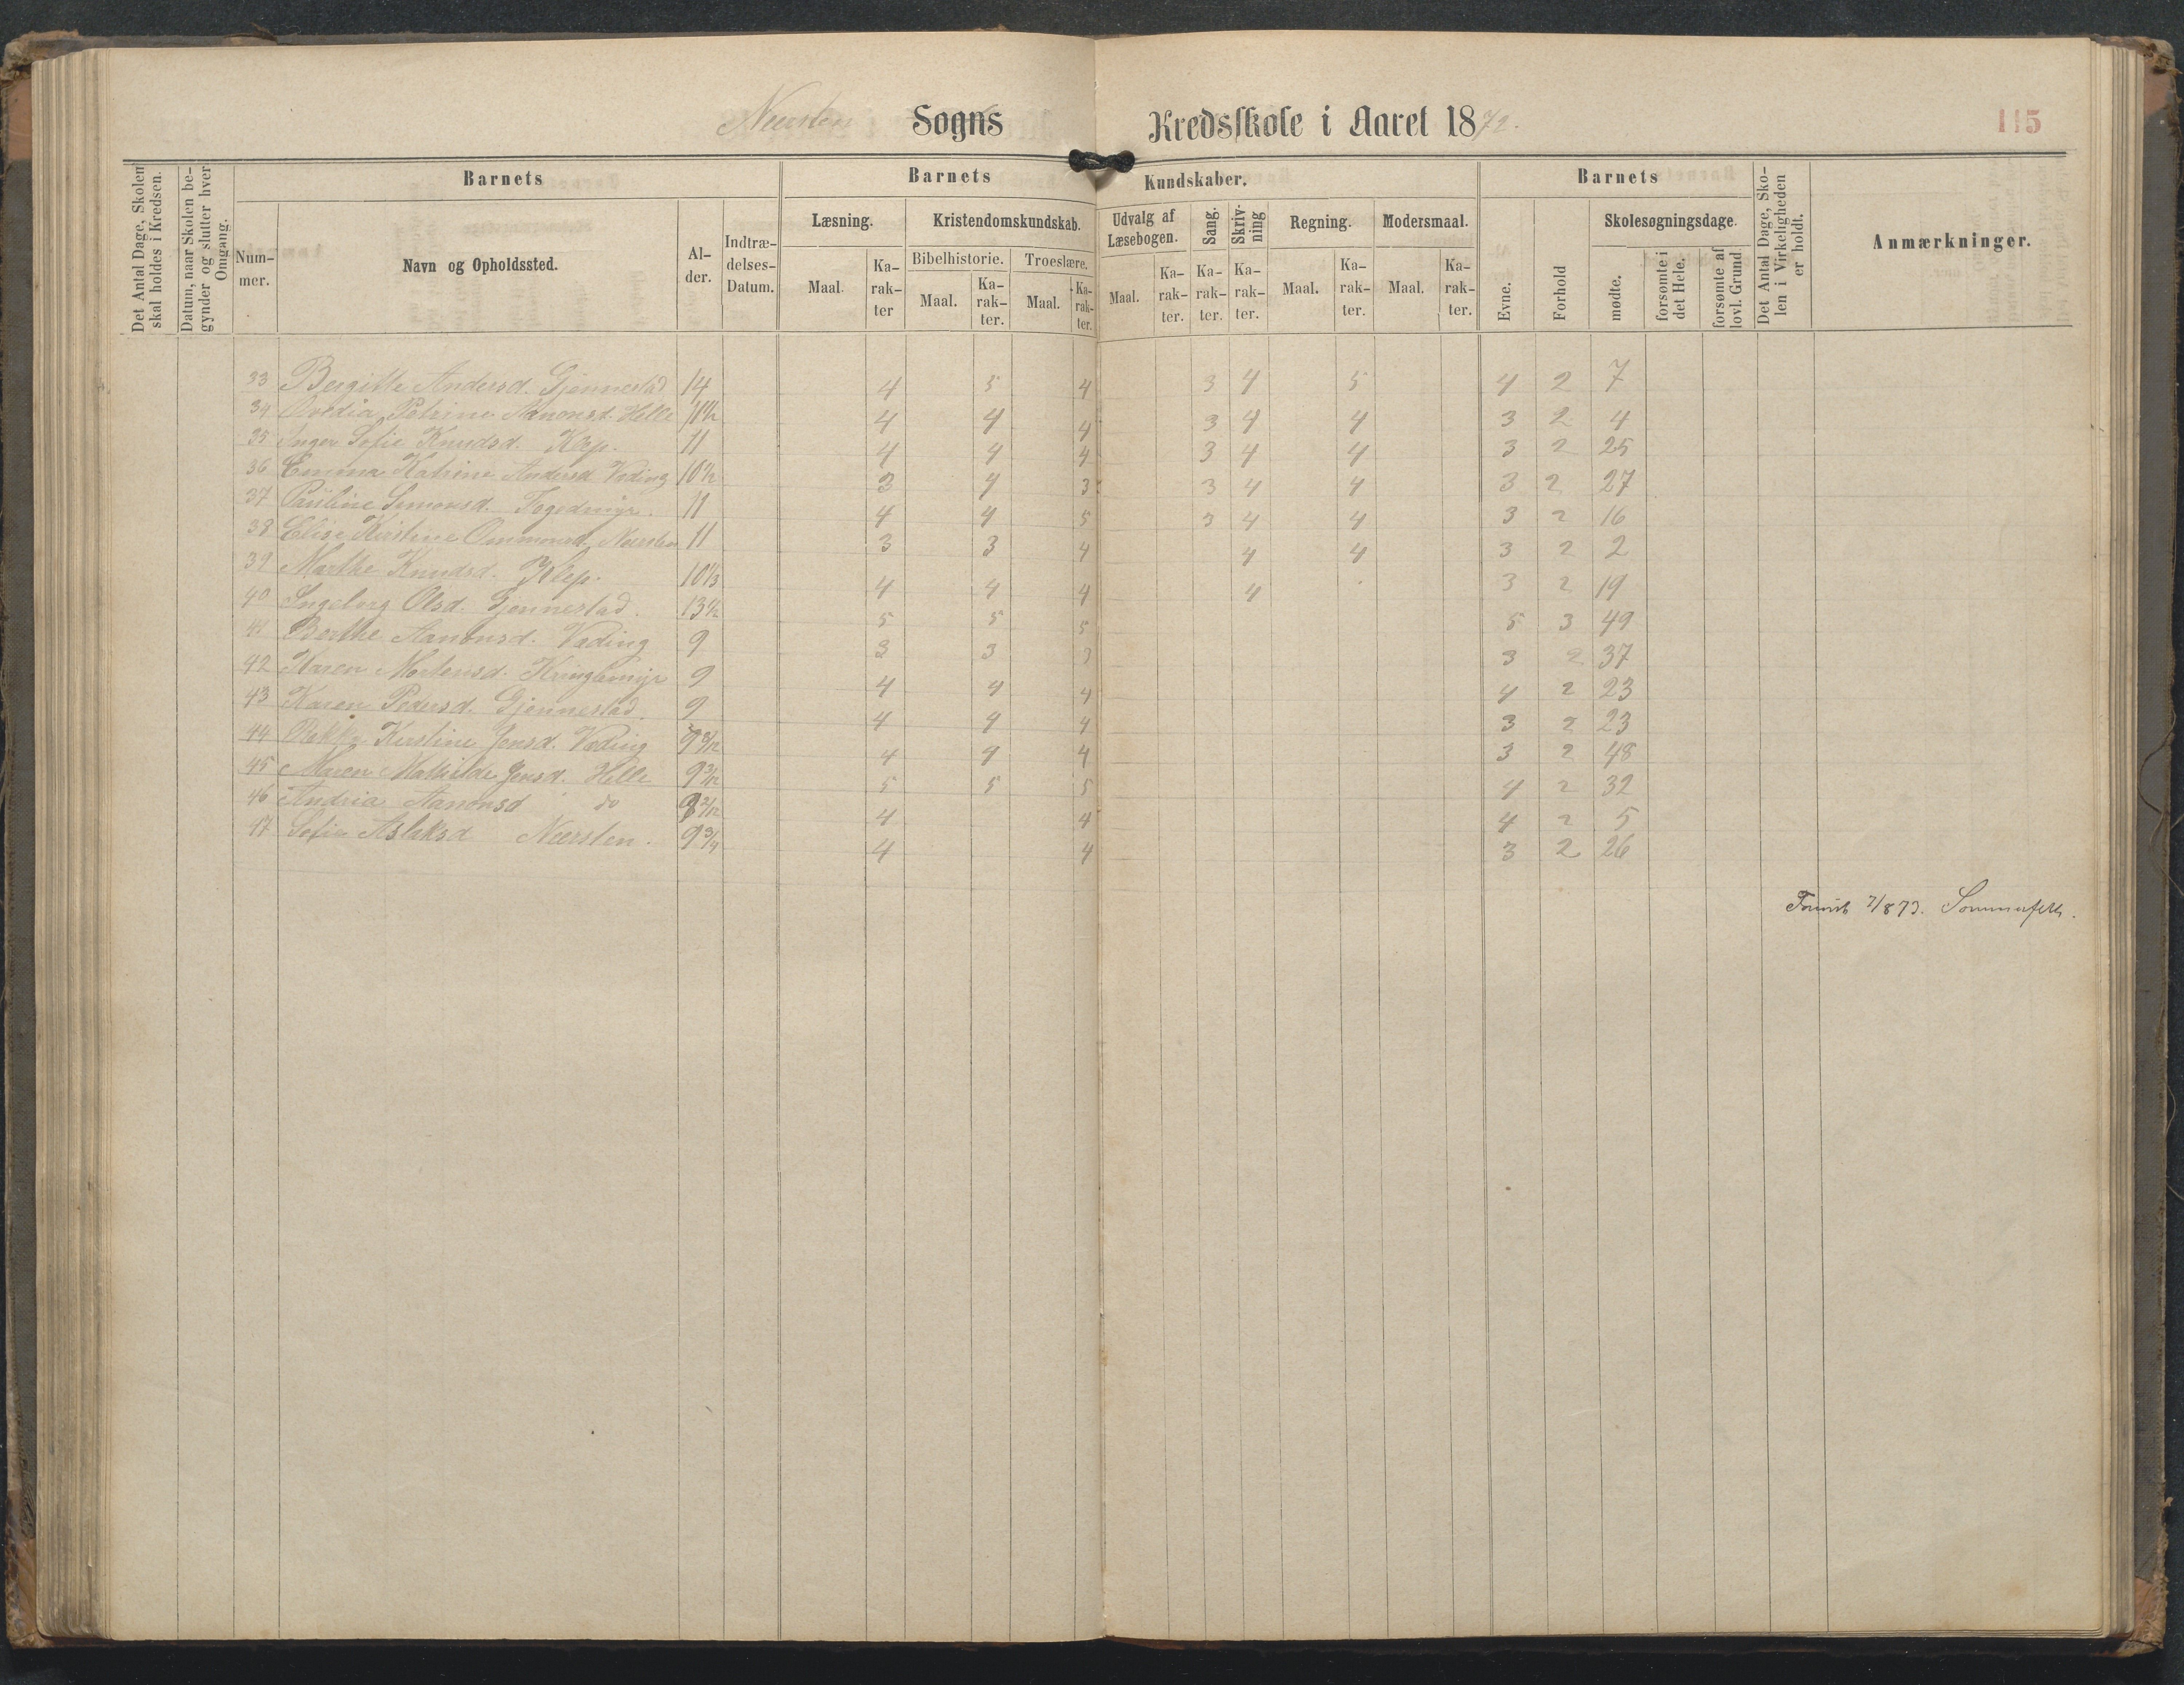 Neersten Sogns Kredsskole i Aaret 1872. 115
Det Antal Dage, Skolen skal holdes i Kredsen.
Datum, naar Skolen begynder og slutter hver Omgang.
Barnets
Nummer.
Navn og Opholdssted.
Alder.
Indtrædelses-Datum.
Barnets Kundskaber.
Læsning.
Maal.
Karakter
Kristendomskundskab.
Bibelhistorie.
Maal.
Karakter.
Troeslære.
Maal.
Karakter.
Udvalg af Læsebogen.
Maal.
Karakter.
Sang.
Karakter.
Skrivning
Karakter.
Regning.
Maal.
Karakter.
Modersmaal.
Maal.
Karakter.
Barnets
Evne.
Forhold
Skolesøgningsdage.
mødte.
forsømte i det Hele.
forsømte af lovl. Grund
Det Antal Dage, Skolen i Virkeligheden er holdt.
Anmærkninger.
33 Bergitte Andersd. Gjennestad 14 4 5 4 3 4 5 4 2 7
34 Ovedia Petrine Aanonsd. Helle 11½ 4 4 4 3 4 4 3 2 4
35 Inger Sofie Knudsd. Klep. 11 4 4 4 3 4 4 3 2 25
36 Emma Katrine Andersd. Væding 10½ 3 4 3 3 4 4 3 2 27
37 Pauline Simonsd. Fogedmyr. 11 4 4 5 3 4 4 3 2 16
38 Elise Kirstine Ommonsd. Neersten 11 3 3 4 4 4 3 2 2
39 Marthe Knudsd. Klep. 10⅓ 4 4 4 4 3 2 19
40 Ingeborg Olsd. Gjennestad. 13½ 5 5 5 5 3 49
41 Berthe Aanonsd. Væding 9 3 3 3 3 2 37
42 Karen Mortensd. Kringlemyr 9 4 4 4 4 2 23
43 Karen Pedersd. Gjennestad. 9 4 4 4 3 2 23
44 Kirstine Jensd. Væding 4 4 4 3 2 48
45 Maren Mathilde Jensd. Helle 9 3/12 5 5 5 4 2 32
46 Andria Aanonsd do 8 2/12 4 4 4 2 5
47 Sofie Aslaksd Neersten. 9¾ 4 4 3 2 26
7/8 73. Sommerfeldt.